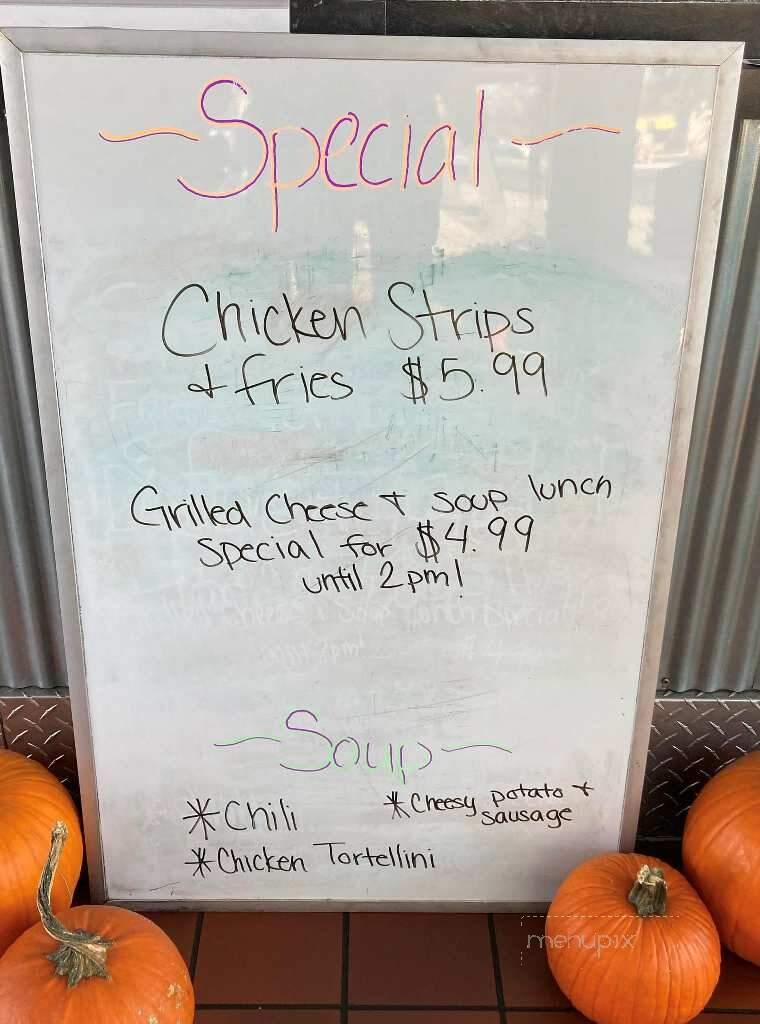 ~Special~
Chicken Strips
& fries $5.99
Grilled Cheese & soup lunch
special for $4.99
until 2pm!
~Soup~
*Chili
*Cheesy potato &
sausage
*Chicken Tortellini
menupix